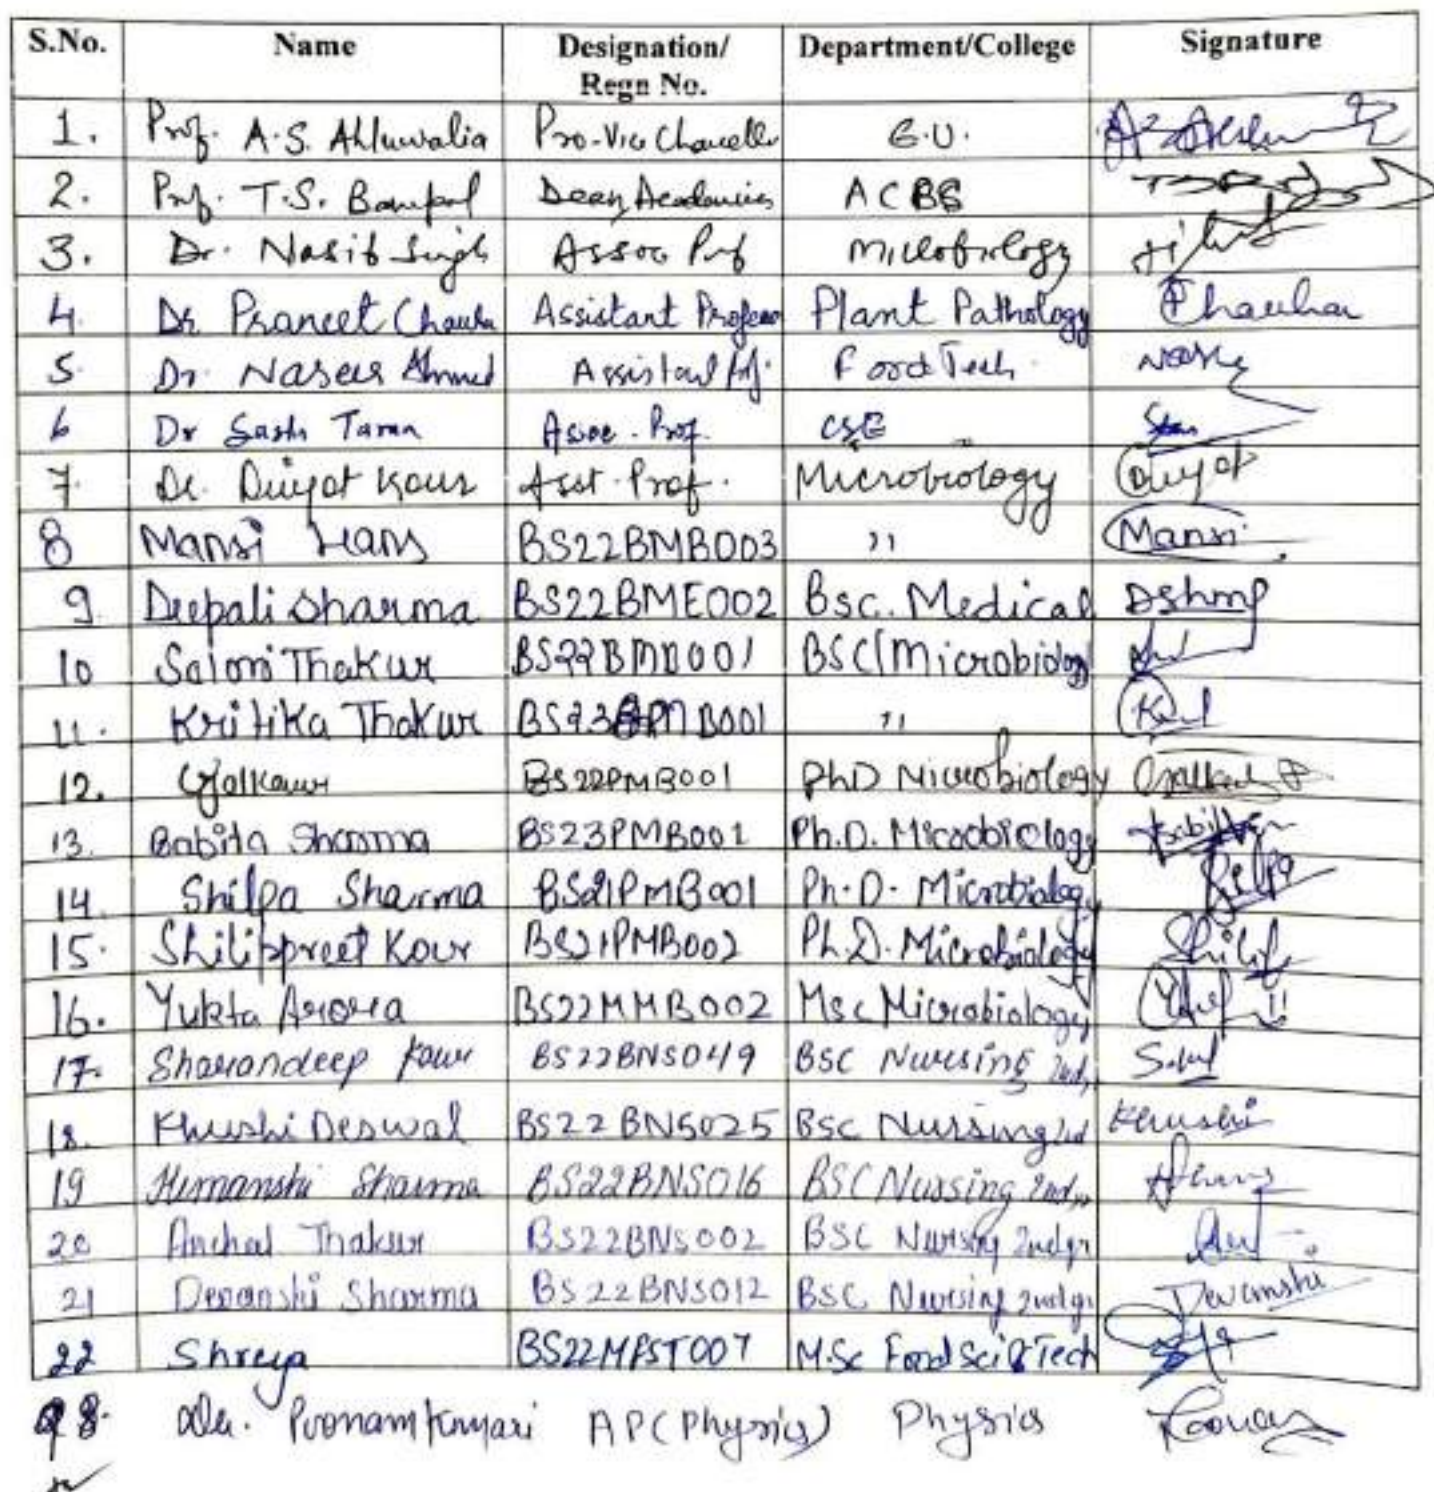 S.No. Name Designation/ Regn No. Department/College Signature
1. Prof. A.S. Ahluwalia Pro-Vice Chancellor E.U.
2. Prof. T.S. Dean Academics ACBS
3. Dr. Nasib Singh Assoc Prof Microbiology
4. Dr Praneet Chauhan Assistant Professor Plant Pathology Chauhan
5. Dr. Naseer Ahmed Assistant Prof. Food Tech.
6 Dr Assoc. Prof. CSE
7. Dr. Kour Asst. Prof. Microbiology
8 Mansi Hans BS22BMB003 " Mansi
9. Deepali Sharma BS22BME002 Bsc. Medical
10 Saloni Thakur BS22BMB001 BSC(Microbiology
11. Kritika Thakur "
12. BS22PMB001 PhD Microbiology
13. Babita Sharma BS23PMB001 Ph.D. Microbiology
14. Shilpa Sharma BS21PMB001 Ph.D. Microbiology Shilpa
15. Shilippreet Kour BS21PMB002 Ph.D. Microbiology
16. Yukta Arora BS22MMB002 Msc Microbiology
17. Sharandeep Kaur BS22BNS049 BSC Nursing 2nd
18. Khushi Deswal BS22BNS025 BSC Nursing 2nd Khushi
19 Himanshi Sharma BS22BNS016 BSC Nursing 2nd yr
20 Anchal Thakur BS22BNS002 BSC Nursing 2nd yr
21 Devanshi Sharma BS22BNS012 BSC Nursing 2nd yr Devanshi
22 Shreya BS22MFST007 M.Sc Food Sci & Tech
Dr. Poonam Kumari AP (Physics) Physics